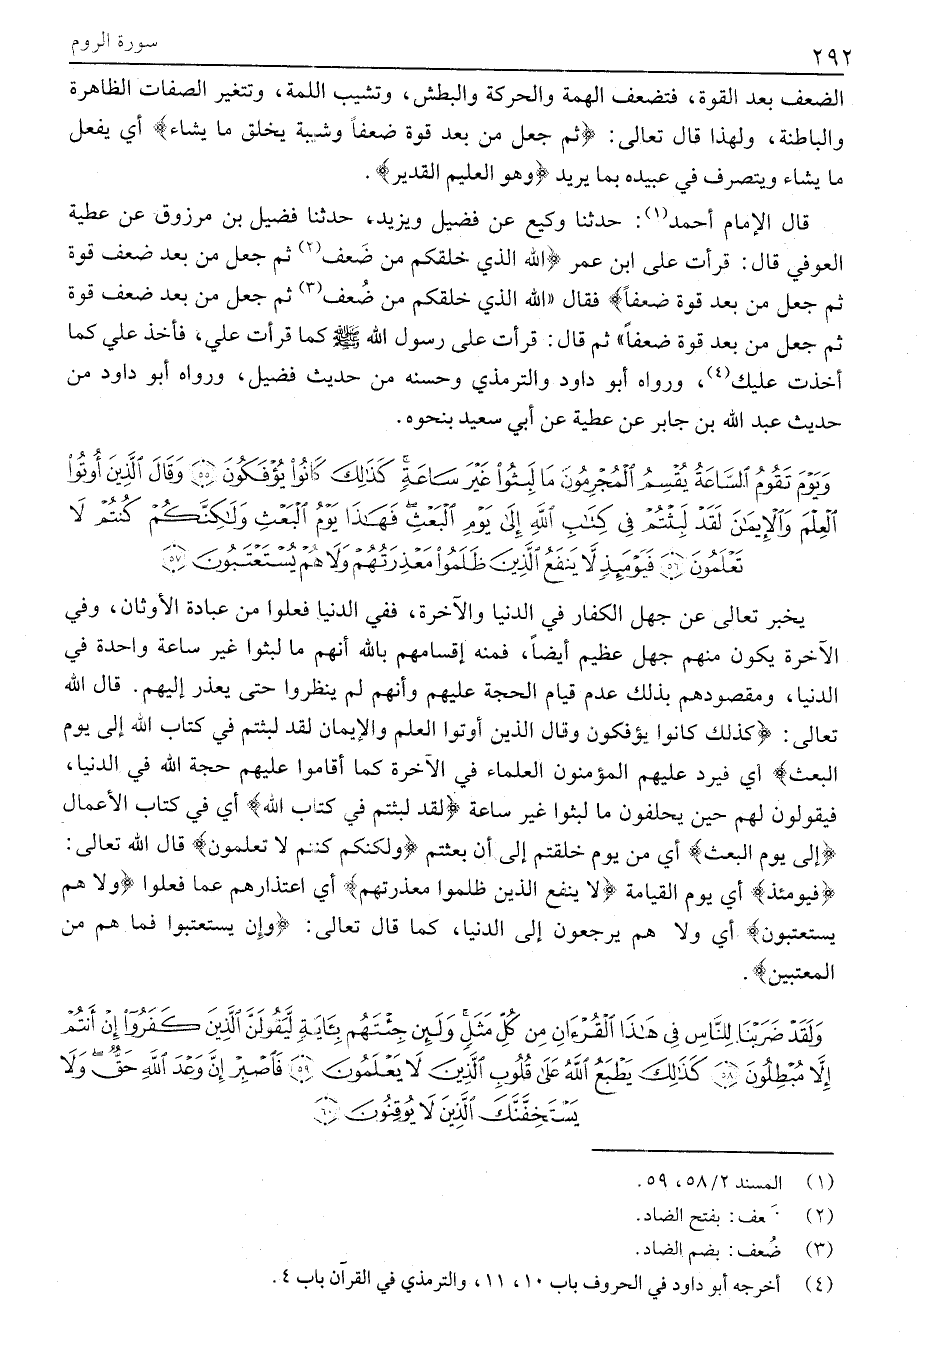 ٢٩٢ سورة الروم
الضعف بعد القوة، فتضعف الهمة والحركة والبطش، وتشيب اللمة، وتتغير الصفات الظاهرة
والباطنة، ولهذا قال تعالى: ﴿ثم جعل من بعد قوة ضعفاً وشيبة يخلق ما يشاء﴾ أي يفعل
ما يشاء ويتصرف في عبيده بما يريد ﴿وهو العليم القدير﴾.
قال الإمام أحمد(١): حدثنا وكيع عن فضيل ويزيد، حدثنا فضيل بن مرزوق عن عطية
العوفي قال: قرأت على ابن عمر ﴿الله الذي خلقكم من ضَعف(٢) ثم جعل من بعد ضعف قوة
ثم جعل من بعد قوة ضعفاً﴾ فقال «الله الذي خلقكم من ضُعف(٣) ثم جعل من بعد ضعف قوة
ثم جعل من بعد قوة ضعفاً» ثم قال: قرأت على رسول الله ﷺ كما قرأت علي، فأخذ علي كما
أخذت عليك(٤)، ورواه أبو داود والترمذي وحسنه من حديث فضيل، ورواه أبو داود من
حديث عبد الله بن جابر عن عطية عن أبي سعيد بنحوه.
وَيَوْمَ تَقُومُ السَّاعَةُ يُقْسِمُ الْمُجْرِمُونَ مَا لَبِثُوا۟ غَيْرَ سَاعَةٍ ۚ كَذَٰلِكَ كَانُوا۟ يُؤْفَكُونَ ﴿٥٥﴾ وَقَالَ الَّذِينَ أُوتُوا۟
الْعِلْمَ وَالْإِيمَٰنَ لَقَدْ لَبِثْتُمْ فِي كِتَٰبِ اللَّهِ إِلَىٰ يَوْمِ الْبَعْثِ ۖ فَهَٰذَا يَوْمُ الْبَعْثِ وَلَٰكِنَّكُمْ كُنتُمْ لَا
تَعْلَمُونَ ﴿٥٦﴾ فَيَوْمَئِذٍ لَّا يَنفَعُ الَّذِينَ ظَلَمُوا۟ مَعْذِرَتُهُمْ وَلَا هُمْ يُسْتَعْتَبُونَ ﴿٥٧﴾
يخبر تعالى عن جهل الكفار في الدنيا والآخرة، ففي الدنيا فعلوا من عبادة الأوثان، وفي
الآخرة يكون منهم جهل عظيم أيضاً، فمنه إقسامهم بالله أنهم ما لبثوا غير ساعة واحدة في
الدنيا، ومقصودهم بذلك عدم قيام الحجة عليهم وأنهم لم ينظروا حتى يعذر إليهم. قال الله
تعالى: ﴿كذلك كانوا يؤفكون وقال الذين أوتوا العلم والإيمان لقد لبثتم في كتاب الله إلى يوم
البعث﴾ أي فيرد عليهم المؤمنون العلماء في الآخرة كما أقاموا عليهم حجة الله في الدنيا،
فيقولون لهم حين يحلفون ما لبثوا غير ساعة ﴿لقد لبثتم في كتاب الله﴾ أي في كتاب الأعمال
﴿إلى يوم البعث﴾ أي من يوم خلقتم إلى أن بعثتم ﴿ولكنكم كنتم لا تعلمون﴾ قال الله تعالى:
﴿فيومئذ﴾ أي يوم القيامة ﴿لا ينفع الذين ظلموا معذرتهم﴾ أي اعتذارهم عما فعلوا ﴿ولا هم
يستعتبون﴾ أي ولا هم يرجعون إلى الدنيا، كما قال تعالى: ﴿وإن يستعتبوا فما هم من
المعتبين﴾.
وَلَقَدْ ضَرَبْنَا لِلنَّاسِ فِي هَٰذَا الْقُرْءَانِ مِن كُلِّ مَثَلٍ ۚ وَلَئِن جِئْتَهُم بِـَٔايَةٍ لَّيَقُولَنَّ الَّذِينَ كَفَرُوٓا۟ إِنْ أَنتُمْ
إِلَّا مُبْطِلُونَ ﴿٥٨﴾ كَذَٰلِكَ يَطْبَعُ اللَّهُ عَلَىٰ قُلُوبِ الَّذِينَ لَا يَعْلَمُونَ ﴿٥٩﴾ فَاصْبِرْ إِنَّ وَعْدَ اللَّهِ حَقٌّ ۖ وَلَا
يَسْتَخِفَّنَّكَ الَّذِينَ لَا يُوقِنُونَ ﴿٦٠﴾
(١) المسند ٥٨/٢، ٥٩.
(٢) َعف: بفتح الضاد.
(٣) ضُعف: بضم الضاد.
(٤) أخرجه أبو داود في الحروف باب ١٠، ١١، والترمذي في القرآن باب ٤.